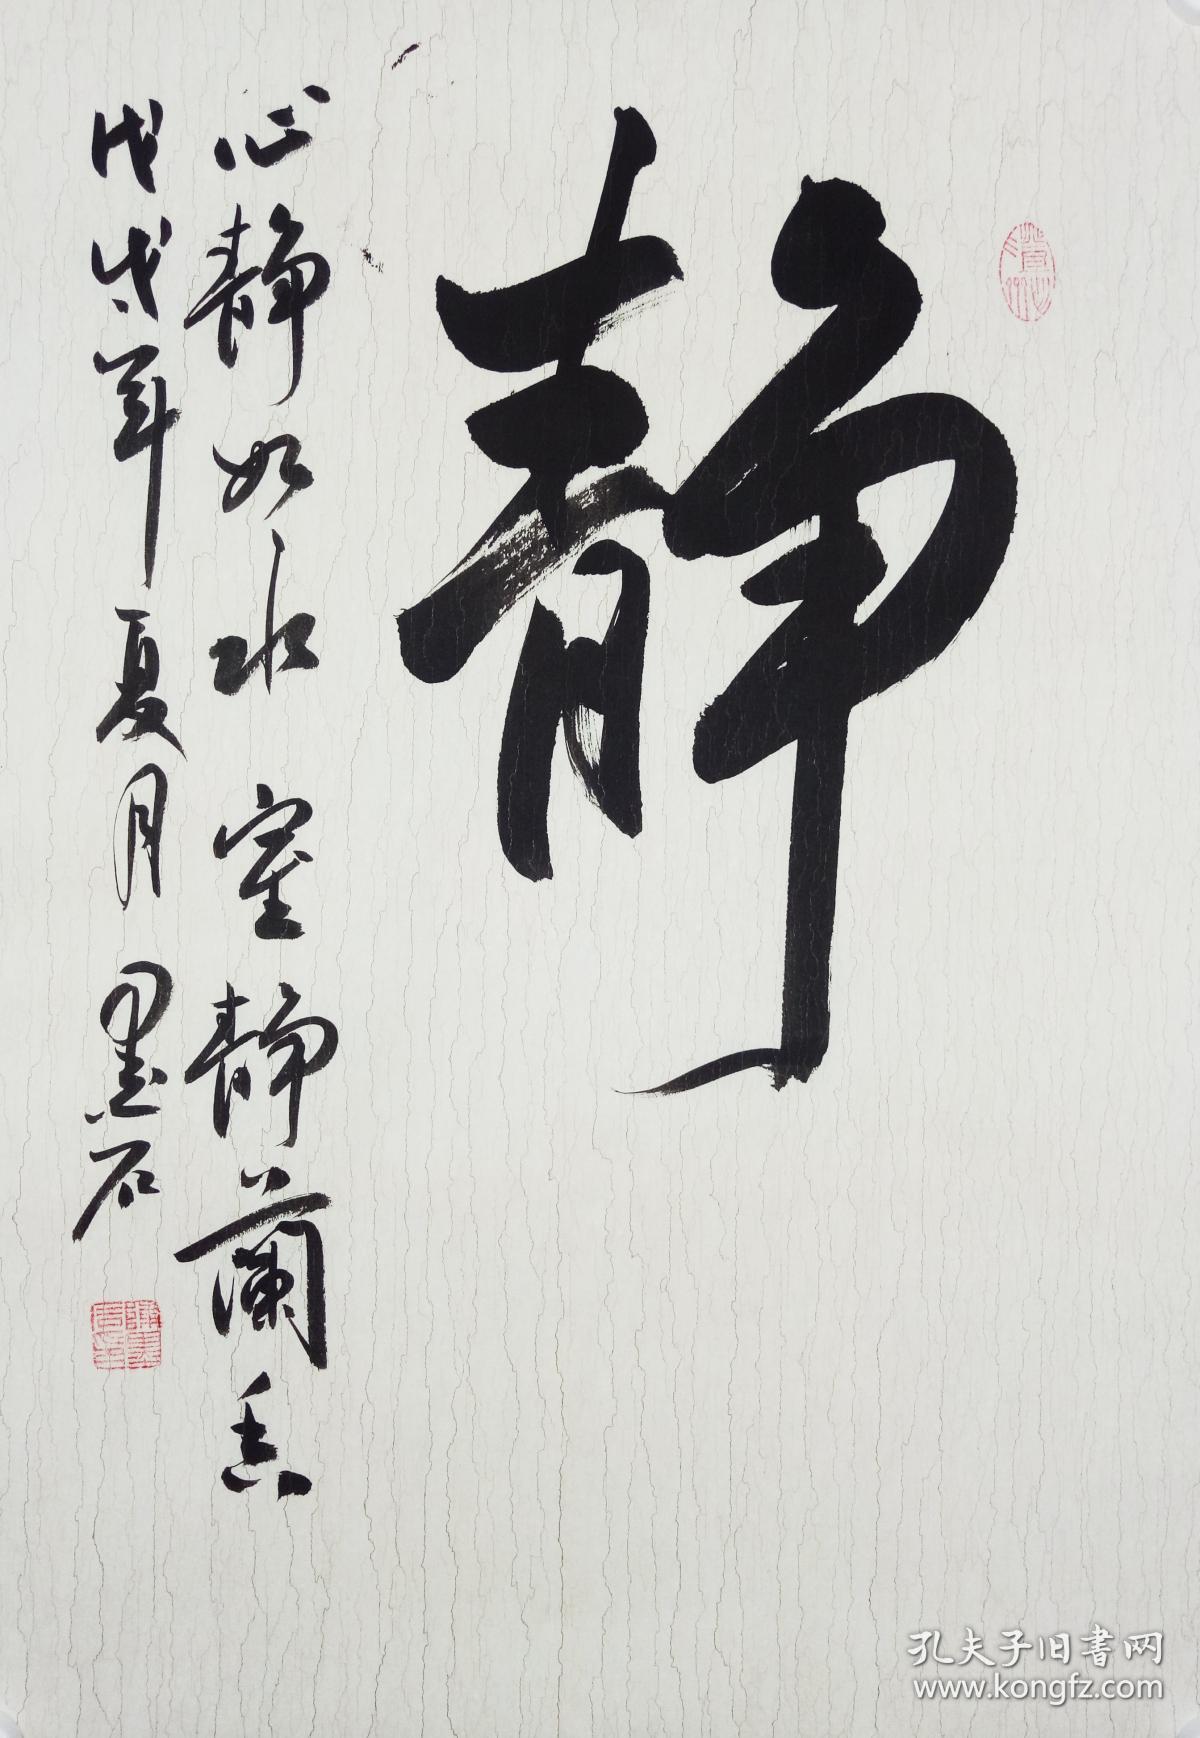 静
心静如水室静蘭香
戊戌年夏月墨石
孔夫子旧書网
www.kongfz.com